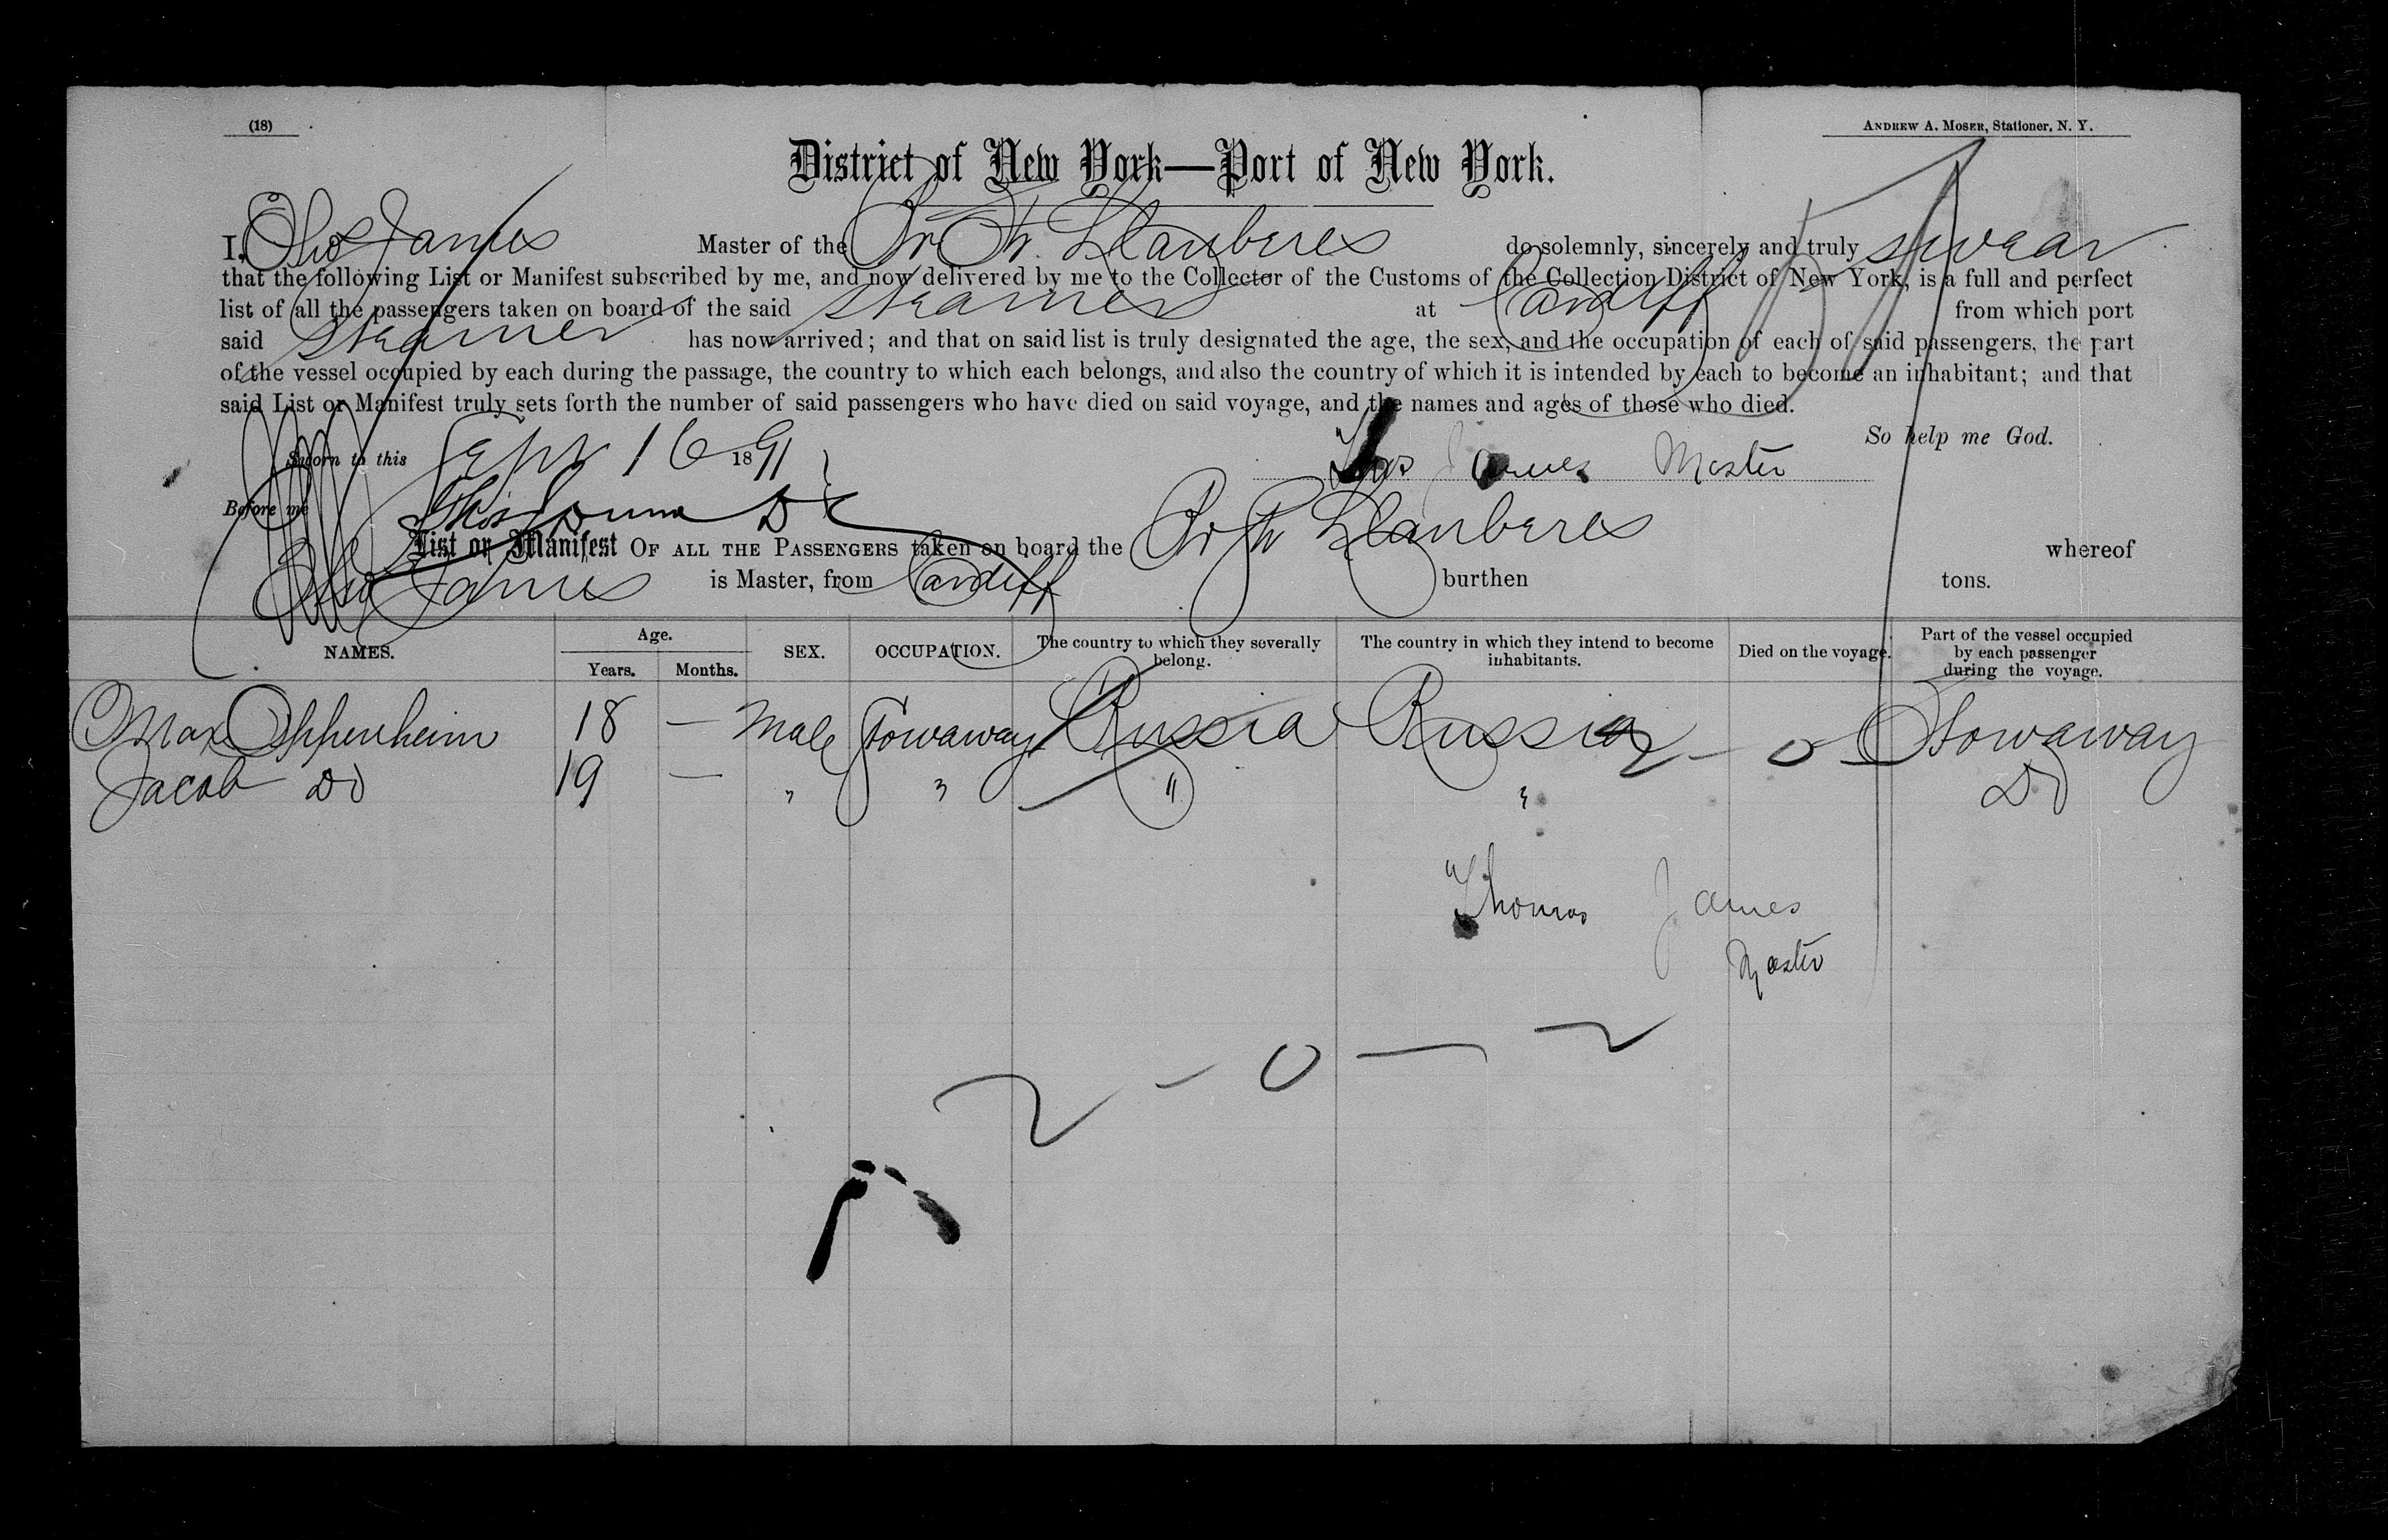 (18)
ANDREW A. MOSER, Stationer, N. Y.
District of New York—Port of New York.
I, Thos James Master of the Br Str. Llanberes do solemnly, sincerely and truly swear
that the following List or Manifest subscribed by me, and now delivered by me to the Collector of the Customs of the Collection District of New York, is a full and perfect
list of all the passengers taken on board of the said steamer at Cardiff from which port
said steamer has now arrived; and that on said list is truly designated the age, the sex, and the occupation of each of said passengers, the part
of the vessel occupied by each during the passage, the country to which each belongs, and also the country of which it is intended by each to become an inhabitant; and that
said List or Manifest truly sets forth the number of said passengers who have died on said voyage, and the names and ages of those who died.
So help me God.
Sworn to this Sept 16 1891
Thos James Master
Before me
List or Manifest OF ALL THE PASSENGERS taken on board the Br Str Llanberes whereof
Thos James is Master, from Cardiff burthen tons.
NAMES. Age. Years. Months. SEX. OCCUPATION. The country to which they severally belong. The country in which they intend to become inhabitants. Died on the voyage. Part of the vessel occupied by each passenger during the voyage.
Max Oppenheim 18 — Male Stowaway Russia Russia 2 — 0 — Stowaway
Jacob Do 19 — " " " " Do
Thomas James
Master
2 - 0 — 2